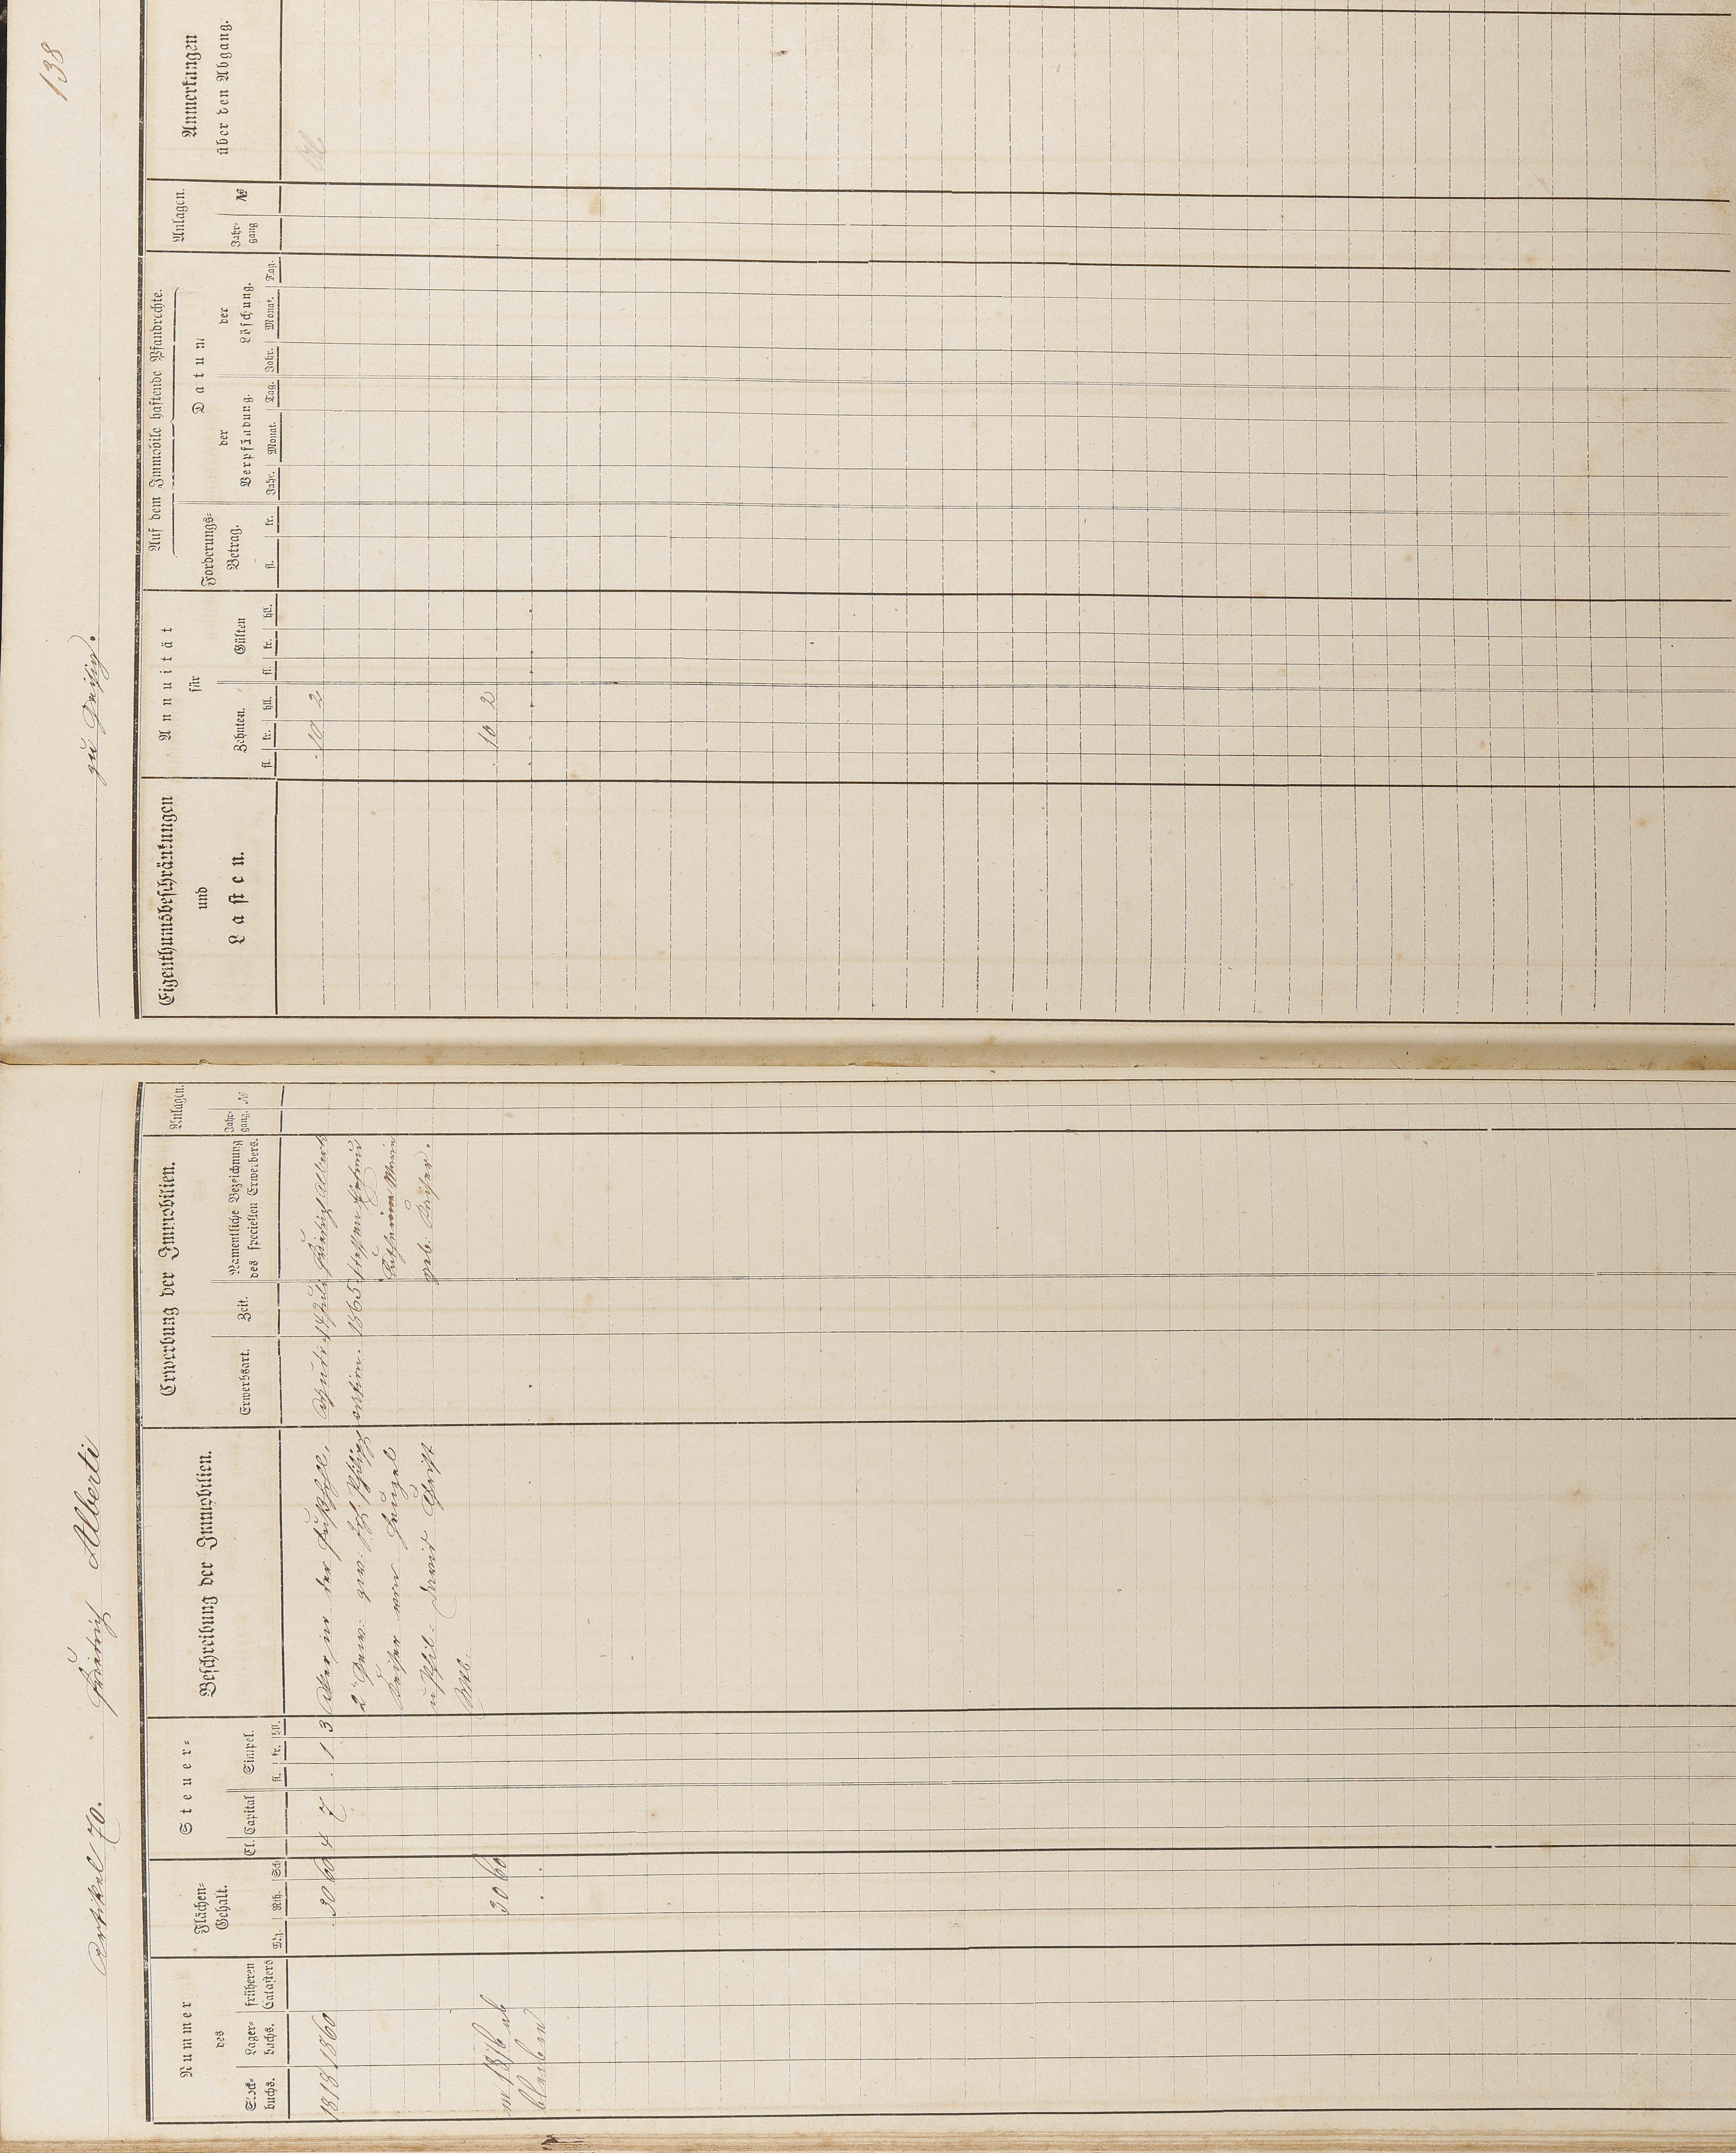 138
Artikel 70. Friedrich Alberti
zu Geisig.
Nummer
des
Stock-
buchs.
Lager-
buchs.
früheren
Catasters
Flächen-
Gehalt.
Mg. Rth. Sch
Steuer-
Cl. Capital
Simpel.
fl. kr. hll.
Beschreibung der Immobilien.
Erwerbung der Immobilien.
Erwerbsart.
Zeit.
Namentliche Bezeichnung
des speciellen Erwerbers.
Anlagen.
Jahr-
gang. №
1818 1860 . 30 60 4 7 . 1 3
Acker in der
2r Gew: gew:
Reiser von
u Phil: David Christ
Wtb.
14 Juli
1865
Friedrich Alberti
dessen Ehefrau
Katharina Maria
geb. Reiser.
in 1876 ab
bleibend
30 60
Eigenthumsbeschränkungen
und
Lasten.
Annuität
für
Zehnten.
fl. kr. hll.
Gülten
fl. kr. hll.
Auf dem Immobile haftende Pfandrechte.
Forderungs-
Betrag.
fl. kr.
Datum
der
Verpfändung.
Jahr. Monat. Tag.
der
Löschung.
Jahr. Monat. Tag.
Anlagen.
Jahr-
gang №
Anmerkungen
über den Abgang.
. 10 2
. 10 2